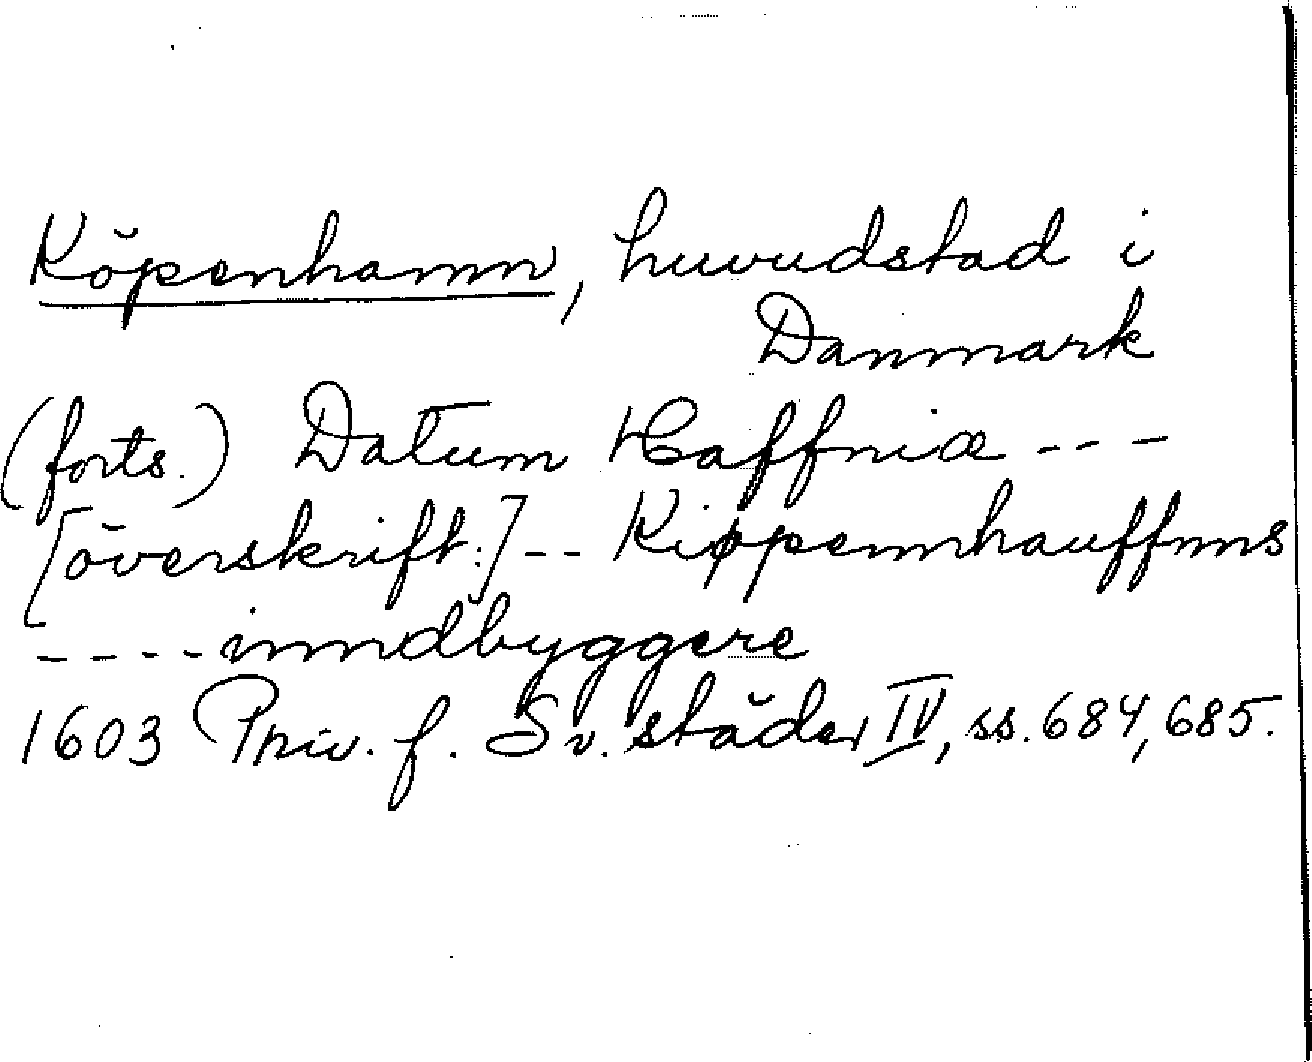 Köpenhamn, huvudstad i
Danmark
(forts.) Datum Haffniæ ---
[överskift:] -- Kiøpennhauffnns
---- inndbyggere
1603 Priv. f. Sv. städer IV, ss. 684, 685.